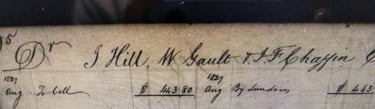 Dr J Hill, W Gault & J F Chaffin
1827 1827
Aug To Cell $ 443 80 Aug By Sundries $ 443